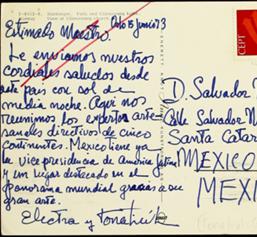 Oslo 15 junio 73
Estimado Maestro.
Le enviamos nuestros
cordiales saludos desde
este país con sol de
media noche. Aquí nos
reunimos los expertos arte-
sanales directivos de cinco
continentes. Mexico tiene ya
la vice presidencia de America latina
y un lugar destacado en el
panorama mundial gracias a su
gran arte.
Electra y Tonatiúh
CEPT
D. Salvador
Calle Salvador
Santa Catar
MEXICO
MEX